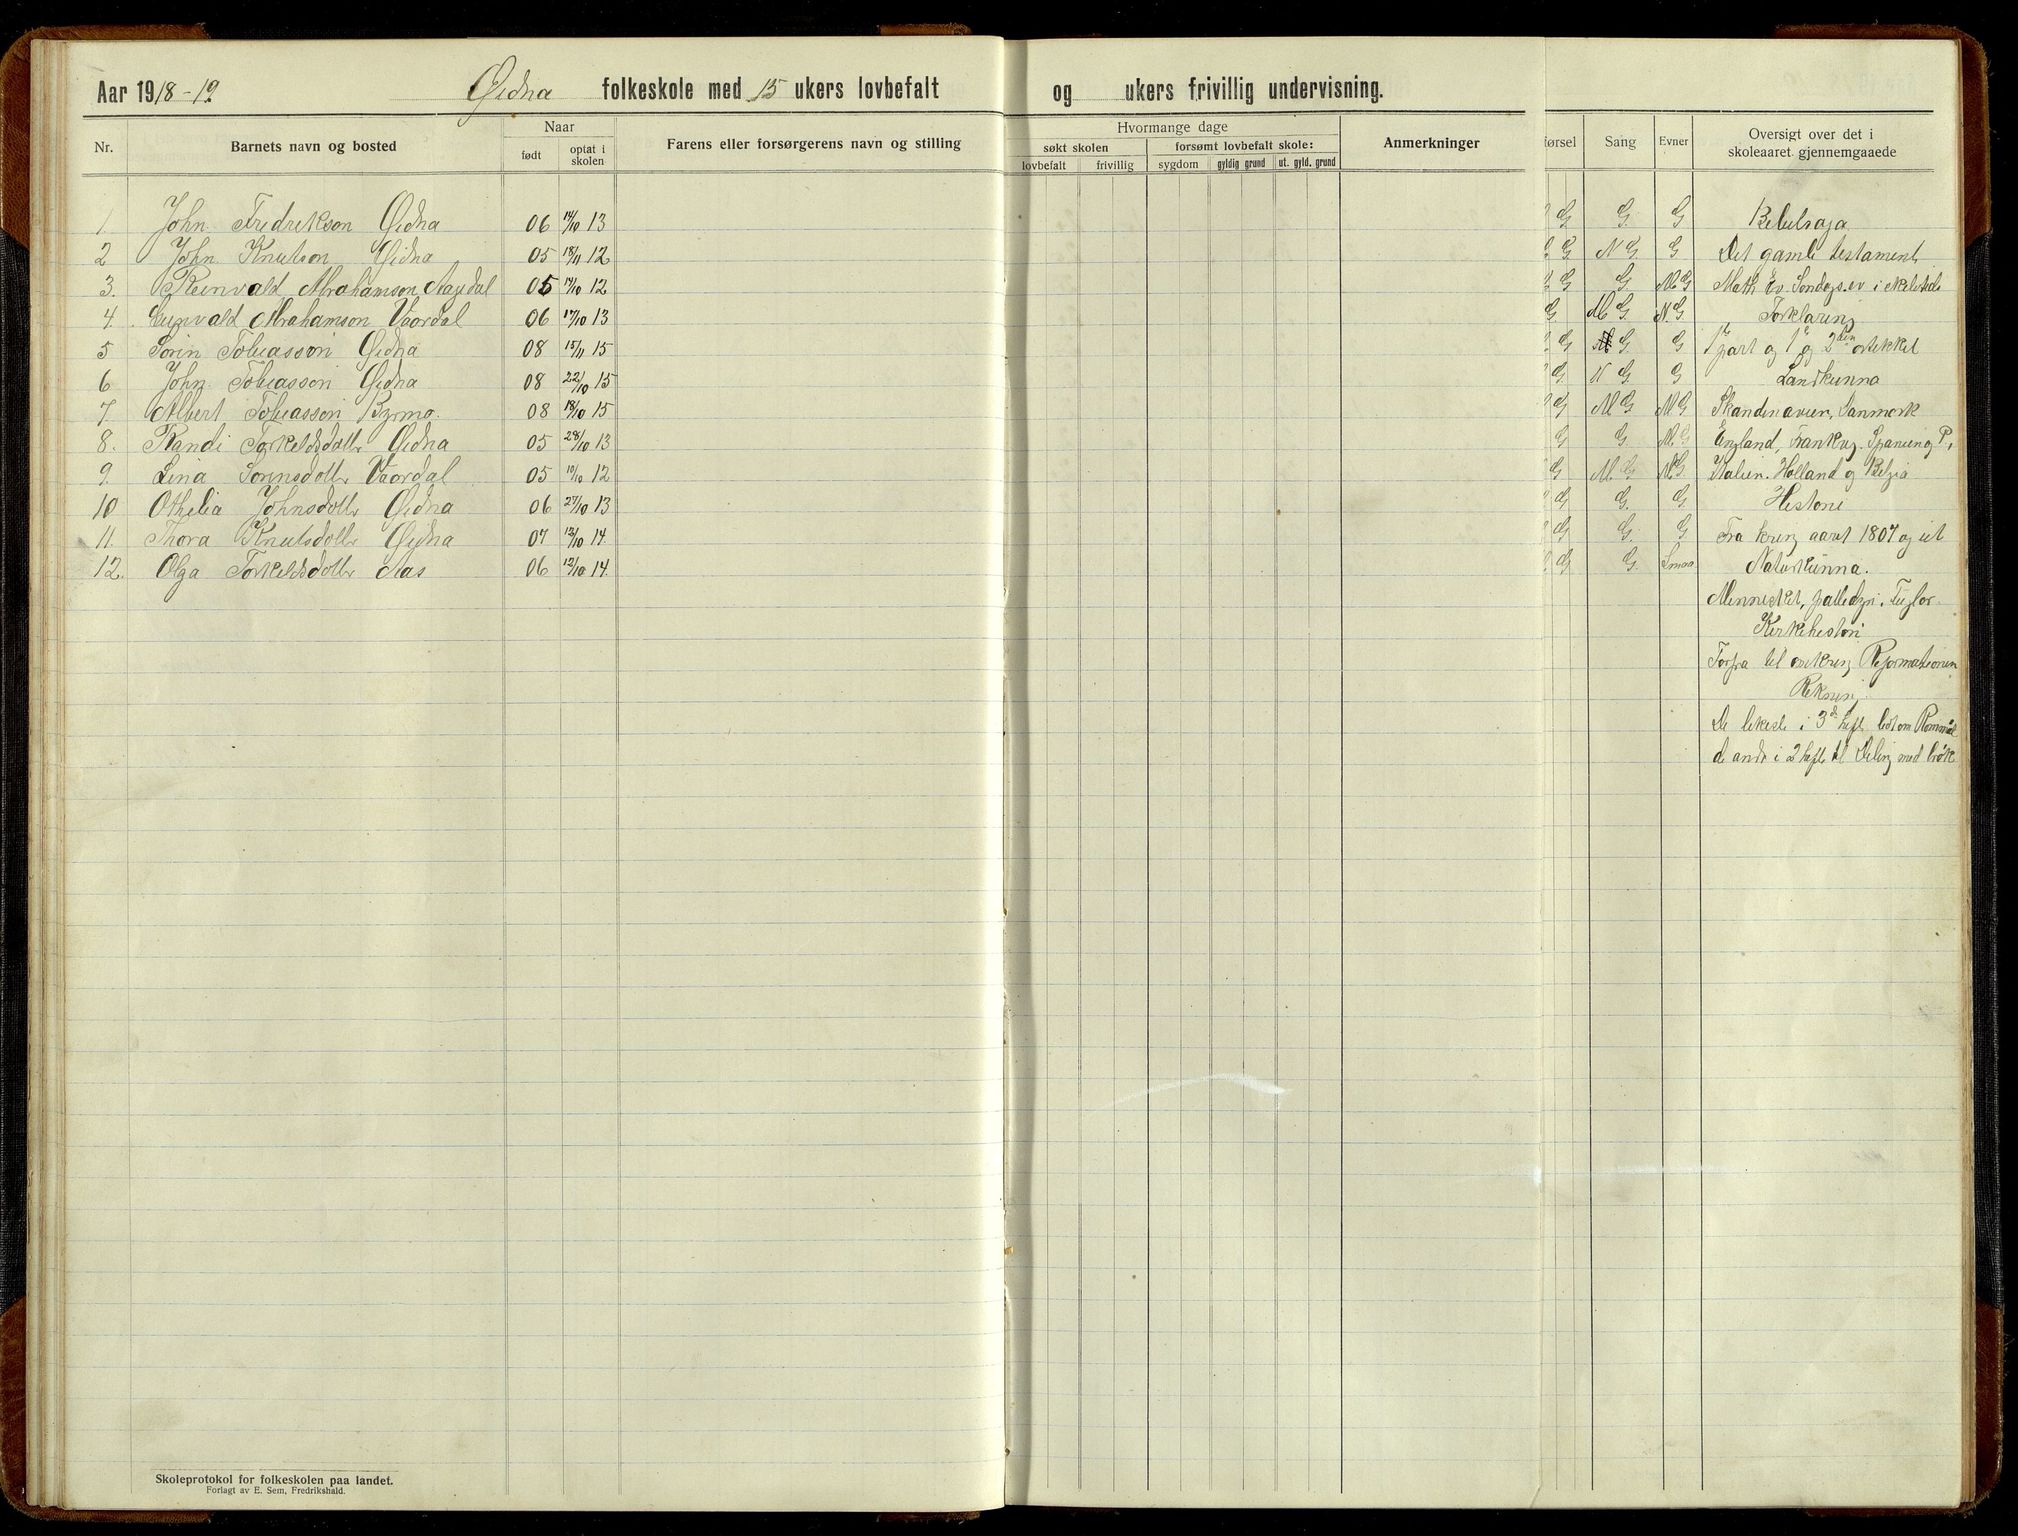 Aar 1918-19. Øidna folkeskole med 15 ukers lovbefalt og ukers frivillig undervisning.
Nr. Barnets navn og bosted Naar født optat i skolen Farens eller forsørgerens navn og stilling
Hvormange dage søkt skolen lovbefalt frivillig forsømt lovbefalt skole: sygdom gyldig grund ut. gyld. grund Anmerkninger
førsel Sang Evner Oversigt over det i skoleaaret gjennemgaaede
1. John Fredrikson Øidna 06 14/10 13 G G. G Bibelsoga.
2 John Knutson Øidna 05 18/11 12 G N G. G Det gamle testament,
3. Reinvald Abrahamson Aagedal 05 14/10 12 G G. M G Math. Ev. Søndags.ev i
4. Gunvald Abrahamson Vaardal 06 17/10 13 G M G. N G Forklaring
5 Sørin Tobiasson Øidna 08 15/11 15 G G. G 1 part og 1 og 2den artikkel
6 John Tobiasson Øidna 08 22/10 15 G N G. G Landkunna
7. Albert Tobiasson Byrmo. 08 18/10 15 G M G M G Skandinavien, Danmork
8. Randi Torkeldsdotter Øidna 05 28/10 13 G G. M G England, Frankrig. Spanien og P,
9. Lina Sørinsdotter Vaardal 05 10/10 12 G M G M G Italien. Holland og Belgia
10 Othelia Johnsdotter Øidna 06 27/10 13 G G. G. Historie
11. Thora Knutsdotter Øidna 07 12/10 14. G G. G Fra kring aaret 1807 og ut
12. Olga Torkeldsdotter Aas 06 12/10 14. G G. Smaa Naturkunna.
Mennisket, pattedyr. Fuglar.
Kirkehistori
Forfra til omkring Reformationen
Rekning
De likeste i 3de hefte
de andre i 2 hefte til Deling med brøk
Skoleprotokol for folkeskolen paa landet.
Forlagt av E. Sem, Fredrikshald.